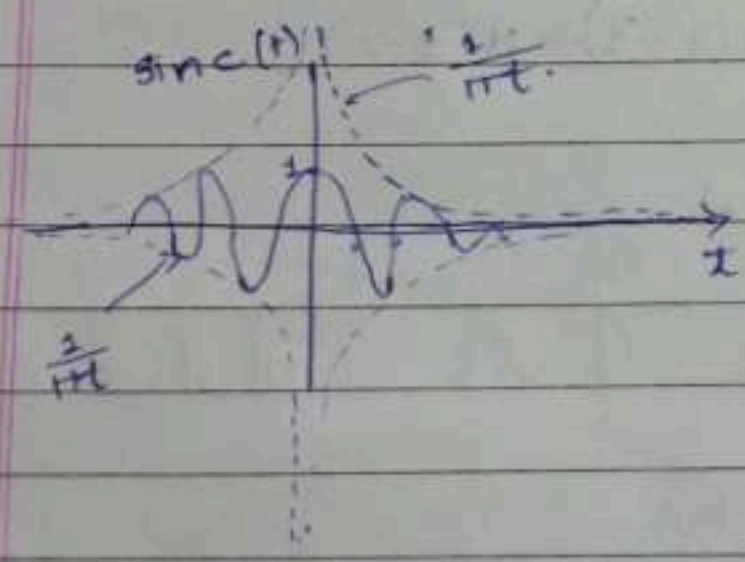 sinc(t)
1
πt
1
t
1
πt